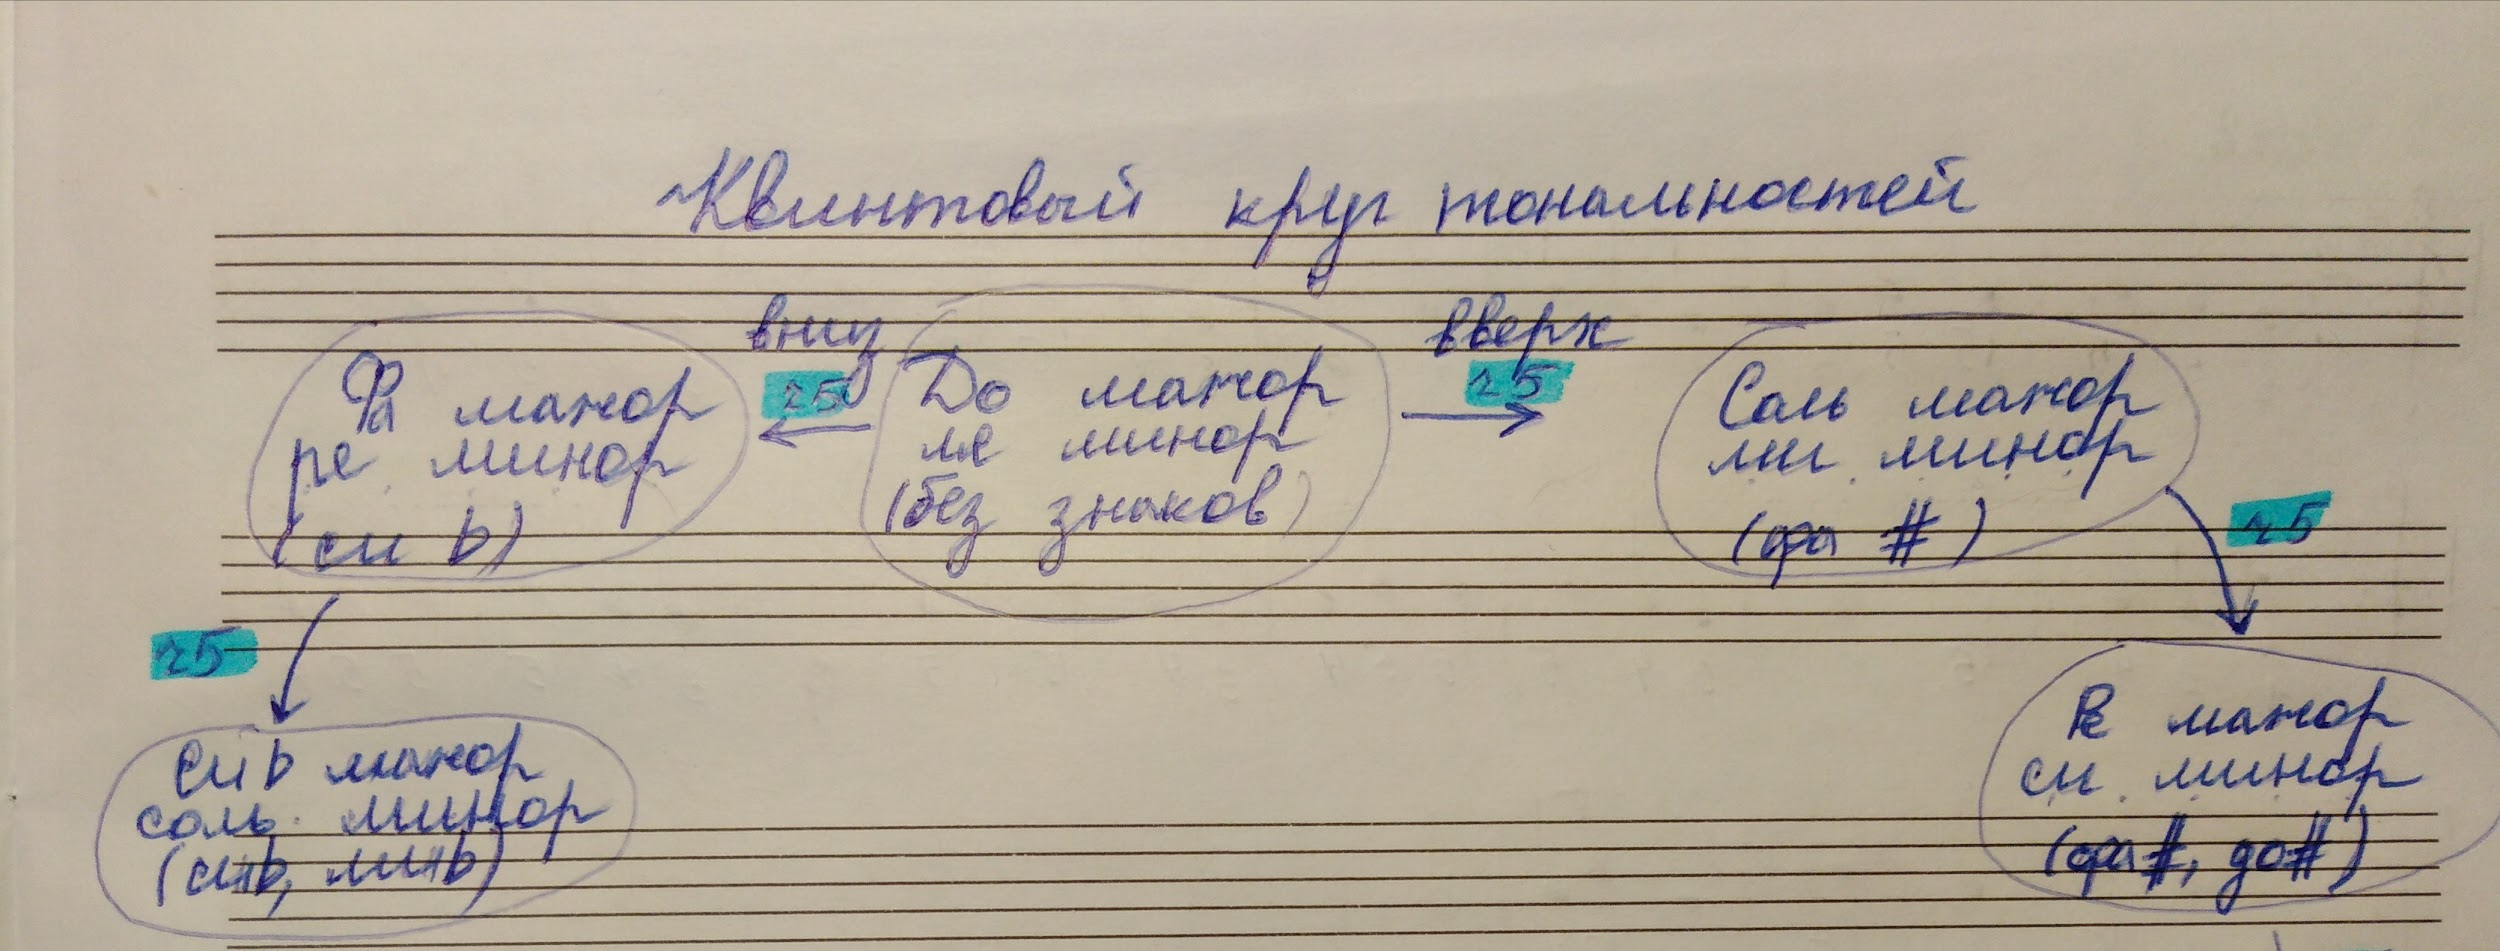 Квинтовый круг тональностей
вниз
ч5
вверх
ч5
Фа мажор
ре минор
(си b)
До мажор
ля минор
(без знаков)
Соль мажор
ми минор
(фа #)
ч5
ч5
Си b мажор
соль минор
(си b, ми b)
Ре мажор
си минор
(фа #, до #)